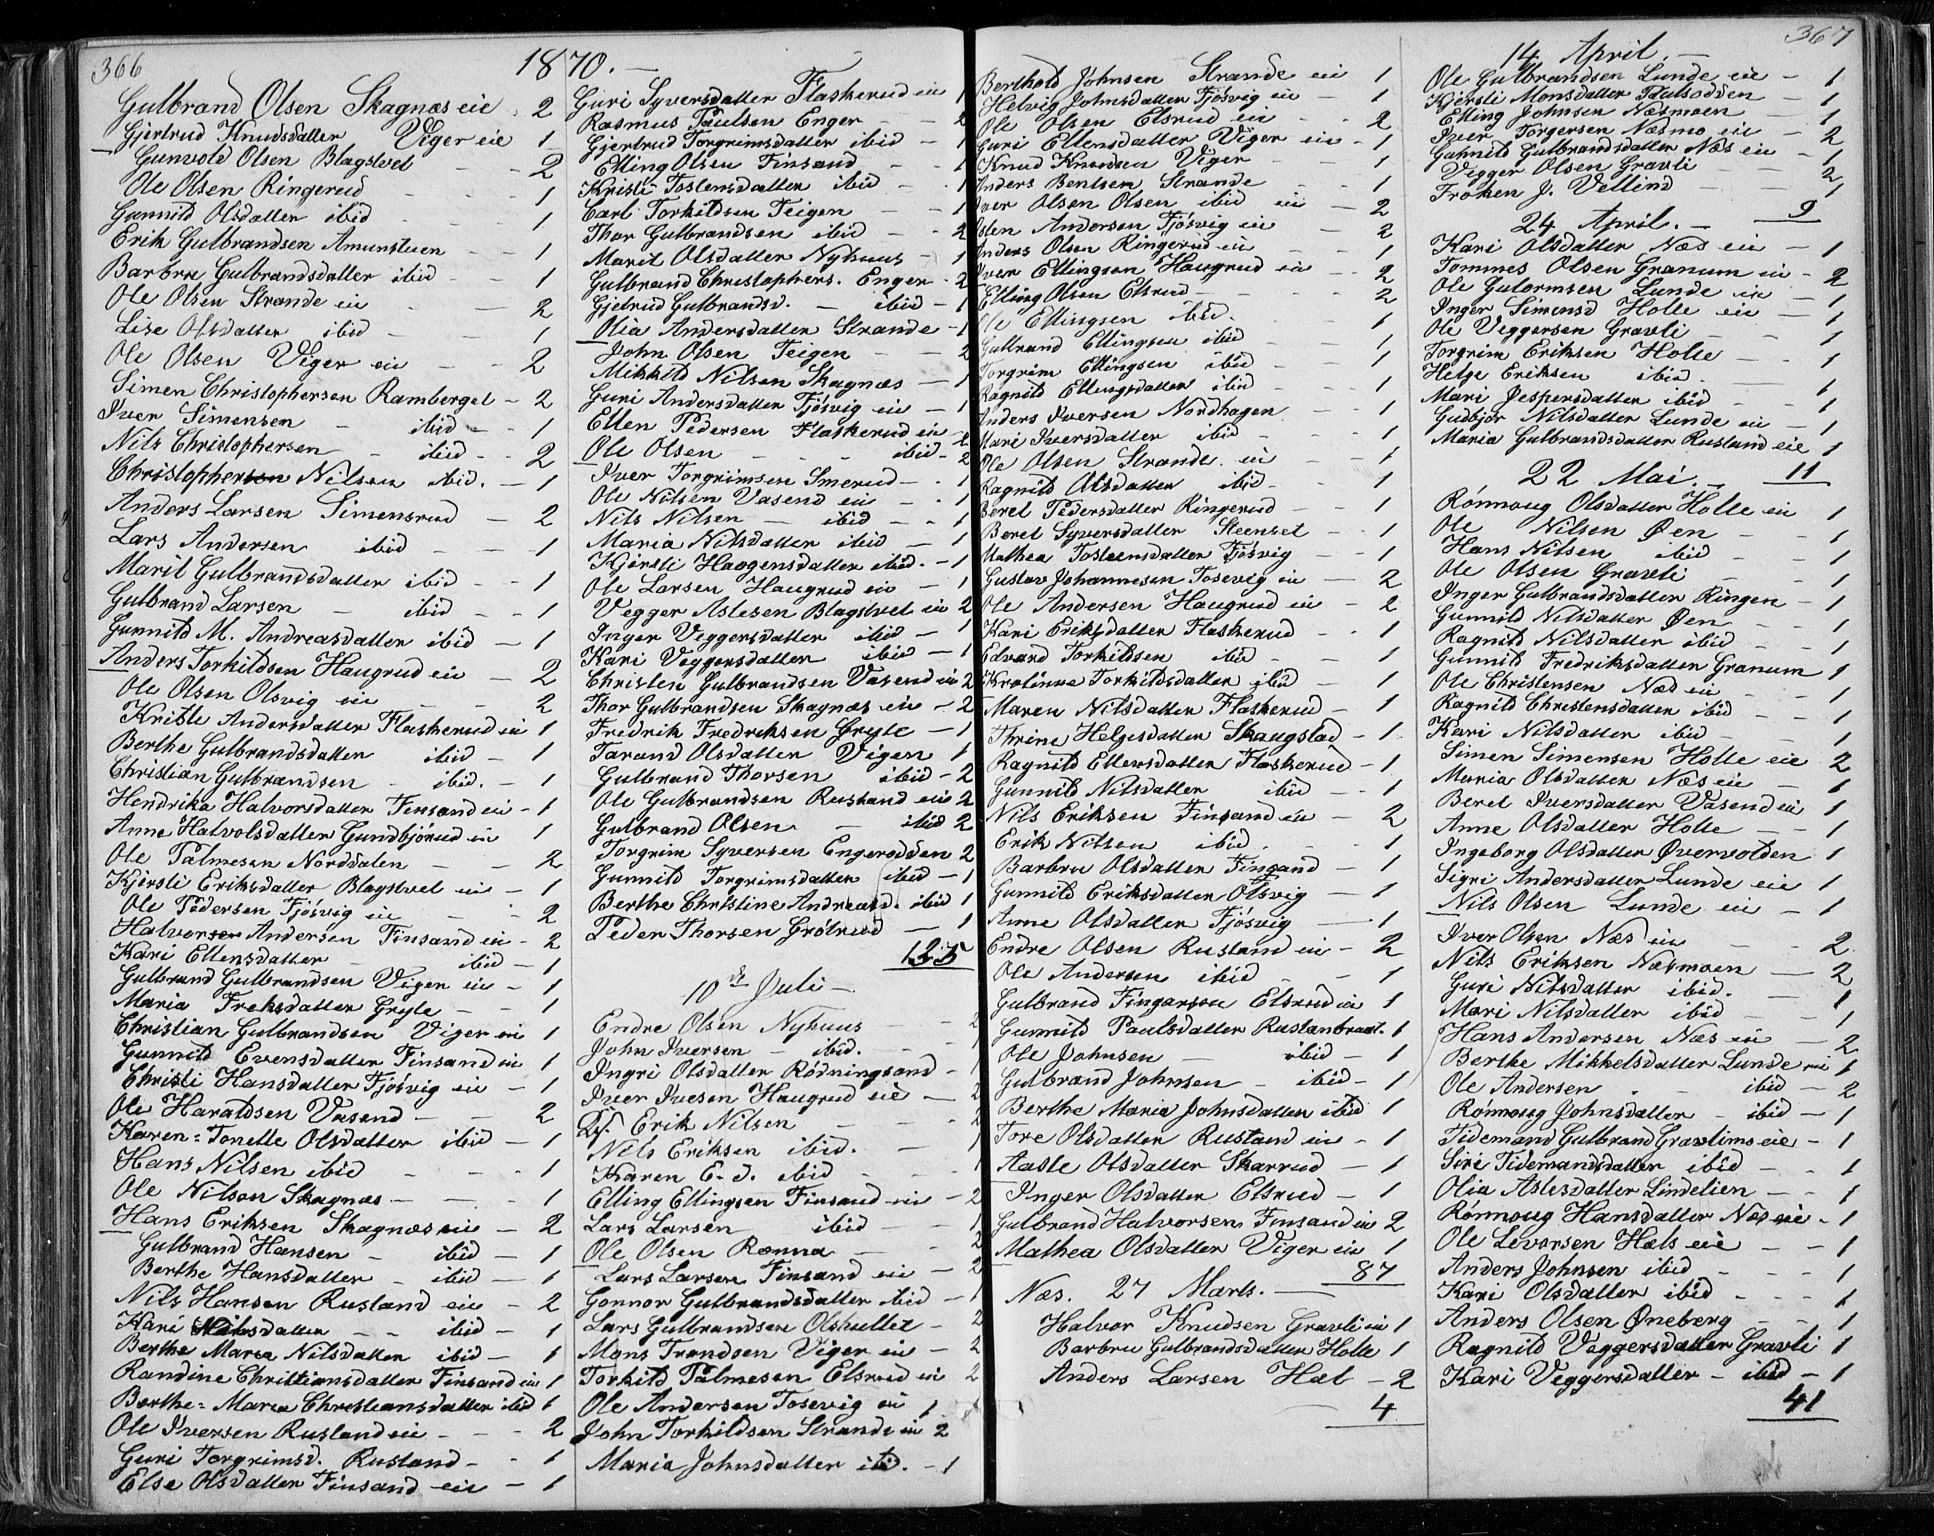 366
1870.
Gulbrand Olsen Skagnæs eie 2
Gjertrud Knudsdatter Viger eie 1
Gunvold Olsen Blagstvet 2
Ole Olsen Ringerud 1
Gunnild Olsdatter ibid 1
Erik Gulbrandsen Amunstuen 1
Barbru Gulbrandsdatter ibid 1
Ole Olsen Strande eie 2
Lise Olsdatter ibid 1
Ole Olsen Viger eie 2
Simen Christophersen Ramberget 2
Iver Simensen ibid 1
Nils Christophersen ibid 2
Christopher Nilsen ibid. 1
Anders Larsen Simensrud 2
Lars Andersen ibid 1
Marit Gulbrandsdatter ibid 1
Gulbrand Larsen ibid 1
Gunnild M. Andreasdatter ibid 1
Anders Torkildsen Haugrud eie 2
Ole Olsen Olsvig eie 2
Andersdatter Flaskerud ei 1
Berthe Gulbrandsdatter ibid 1
Christian Gulbrandsen ibid. 1
Hendrika Halvorsdatter Finsand ei 1
Anne Halvolsdatter Gundbjörud ei 1
Ole Palmesen Norddalen 2
Kjersti Eriksdatter Blagstvet ei 1
Ole Pedersen Fjösvig eie 2
Halvor Andersen Finsand ei 2
Kari Ellensdatter ibid 1
Gulbrand Gulbrandsen Vigen ei 1
Maria Freksdatter Gryte 1
Christian Gulbrandsen Viger ei 1
Gunnild Evensdatter Finsand ei 1
Christi Hansdatter Fjösvig ei 1
Ole Haraldsen Vasend 2
Karen-Tonette Olsdatter ibid 1
Hans Nilsen ibid 1
Ole Nilsen Skagnæs 1
Hans Eriksen Skagnæs eie 2
Gulbrand Hansen ibid 1
Berthe Hansdatter ibid 1
Nils Hansen Rusland eie 2
Kari Nilsdatter ibid 1
Berthe Maria Nilsdatter ibid 1
Randine Christiansdatter Finsand ei 1
Berthe-Maria Christiansdatter ibid 1
Ole Iversen Rusland eie 2
Guri Torgrimsd. Rusland 1
Else Olsdatter Finsand eie 1
Guri Syversdatter Flaskerud ei 1
Rasmus Paulsen Enger 2
Gjertrud Torgrimsdatter ibid 1
Elling Olsen Finsand 1
Kristi Tostensdatter ibid 1
Carl Torkildsen Teigen 1
Thor Gulbrandsen ibid 2
Marit Olsdatter Nyhuus 1
Gulbrand Christophers. Enger 2
Gjetrud Gulbrandsd. ibid 1
Olia Andersdatter Strande 1
John Olsen Teigen 2
Mikkild Nilsen Skagnæs 1
Guri Andersdatter Fjösvig ei 1
Ellen Pedersen Flaskerud ei 2
Ole Olsen ibid 2
Iver Torgrimsen Smerud 1
Ole Nilsen Vasend ei 1
Nils Nilsen ibid 1
Maria Nilsdatter ibid 1
Kjersti Haagensdatter ibid. 1
Ole Larsen Haugrud ei 1
Vegger Aslesen Blagstvet ei 2
Inger Veggersdatter ibid 1
Kari Veggersdatter ibid 1
Christen Gulbrandsen Vasend ei 2
Thor Gulbrandsen Skagnæs ei 2
Fredrik Fredriksen Gryte 1
Tarand Olsdatter Vigen 1
Gulbrand Thorsen ibid 2
Ole Gulbrandsen Rustand eie 2
Gulbrand Olsen ibid 2
Torgrim Syversen Engerodden 2
Gunnild Torgrimsdatter ibid 1
Berthe Christine Andreasd. ibid 1
Peder Thorsen Grötrud 1
135
10de Juli
Endre Olsen Nyhuus 2
John Iversen ibid. 1
Ingri Olsdatter Rödningsand 1
Iver Ivesen Haugrud eie 2
Erik Nilsen 2
Nils Eriksen ibid. 1
Karen E. d. ibid 1
Elling Ellingsen Finsand ei 2
Lars Larsen ibid 1
Ole Olsen Rænna 2
Lars Larsen Finsand ei 2
Gonnor Gulbrandsdatter ibid 1
Lars Gulbrandsen Olshullet 2
Mons Trondsen Viger ei 2
Torkild Palmesen Elsrud ei 2
Ole Andersen Tosevig ei 1
John Torkildsen Strande ei 2
Maria Johnsdatter ib. 1
Berthold Johnsen Strande ei 1
Helvig Johnsdatter Fjösvig ei 1
Ole Olsen Elsrud ei 2
Guri Ellensdatter Viger ei 1
Knud Knudsen Viger 1
Anders Bentsen Strande 1
Iver Olsen Olsen ibid ei 2
Osten Andersen Fjösvig ei 2
Anders Olsen Ringerud ei 1
Iver Ellingsen Haugrud ei 2
Elling Olsen Elsrud 2
Ole Ellingsen ibid. 1
Gulbrand Ellingsen ibid 1
Torgrim Ellingsen ibid 1
Ragnild Ellingsdatter ibid 1
Anders Iversen Nordhagen 1
Mari Iversdatter ibid 1
Ole Olsen Strande ei 1
Ragnild Olsdatter ibid 1
Beret Pedersdatter Ringerud 1
Beret Syversdatter Steenset 1
Mathea Tosteensdatter Fjösvig 1
Gustav Johannesen Tosevig ei 2
Ole Andersen Haugrud ei 2
Kari Eriksdatter Flaskerud 1
Edvard Torkildsen ibid 1
Karolinna Torkildsdatter ibid 1
Maren Nilsdatter Flaskerud 1
Thrine Helgesdatter Skaugstad 1
Ragnild Ellensdatter Flaskerud 1
Gunnild Nilsdatter ibid 1
Nils Eriksen Finsand ei 2
Erik Nilsen ibid. 1
Barbru Olsdatter Finsand 1
Gunnild Eriksdatter Olsvig 1
Anne Olsdatter Fjösvig 1
Endre Olsen Rustand ei 2
Ole Andersen ibid 1
Gulbrand Fingarson Elsrud ei 1
Gunnild Paulsdatter Rustanbraat. 1
Ole Johnsen ibid 1
Gulbrand Johnsen ibid 1
Berthe Maria Johnsdatter ibid 1
Tore Olsdatter Rustand ei 1
Aasle Olsdatter Skarrud 1
Inger Olsdatter Elsrud 1
Gulbrand Halvorsen Finsand ei 2
Mathea Olsdatter Viger ei 1
87
Næs. 27 Marts.
Halvor Knudsen Gravli ei 1
Barbru Gulbrandsdatter Holte 1
Anders Larsen Hæl 2
4
367
14 April.
Ole Gulbrandsen Lunde eie 1
Kjersti Monsdatter Paulsodden 1
Elling Johnsen Næsmoen 1
Iver Torgersen Næsmo ei 2
Guhnild Gulbrandsdatter Næs ei 1
Vigger Olsen Gravli 2
Fröken J. Vellind 1
9
24 April.
Kari Olsdatter Næs ei 1
Tommes Olsen Granum ei 2
Ole Gulormsen Lunde ei 1
Inger Simensd Holte ei 1
Ole Veggersen Gravli 1
Torgrim Eriksen Holte 1
Helge Eriksen ibid. 1
Mari Jespersdatter ibid 1
Gudbjör Nilsdatter Lunde ei 1
Maria Gulbrandsdatter Rusland eie 1
11
22 Mai.
Rönnaug Olsdatter Holte ei 1
Ole Nilsen Øen 1
Hans Nilsen ibid 1
Ole Olsen Gravli 1
Inger Gulbrandsdatter Ringen 1
Gunnild Nilsdatter Øen 1
Ragnild Nilsdatter ibid 1
Gunnild Fredriksdatter Granum 1
Ole Christensen Næs ei 1
Ragnild Christensdatter ibid 1
Kari Nilsdatter ibid 1
Simen Simensen Holte eie 2
Maria Olsdatter Næs ei 1
Beret Iversdatter Vasend ei 1
Anne Olsdatter Holte 1
Ingeborg Olsdatter Øvervolden 1
Sigri Andersdatter Lunde eie 1
Nils Olsen Lunde ei 1
Iver Olsen Næs ei 2
Nils Eriksen Næsmoen 2
Guri Nilsdatter ibid. 1
Mari Nilsdatter ibid 1
Hans Andersen Næs ei 2
Berthe Mikkelsdatter Lunde ei 1
Ole Andersen ibid 2
Rönnoug Johnsdatter ibid 1
Tidemand Gulbrand Gravlims eie 1
Siri Tidemandsdatter ibid 1
Olia Aslesdatter Lindelien 1
Rönnoug Hansdatter Næs eie 1
Ole Levorsen Hæls eie 1
Anders Johnsen ibid 1
Kari Olsdatter ibid 1
Anders Olsen Øneberg 1
Ragnild Veggersdatter Gravli 1
Kari Veggersdatter ibid 1
41